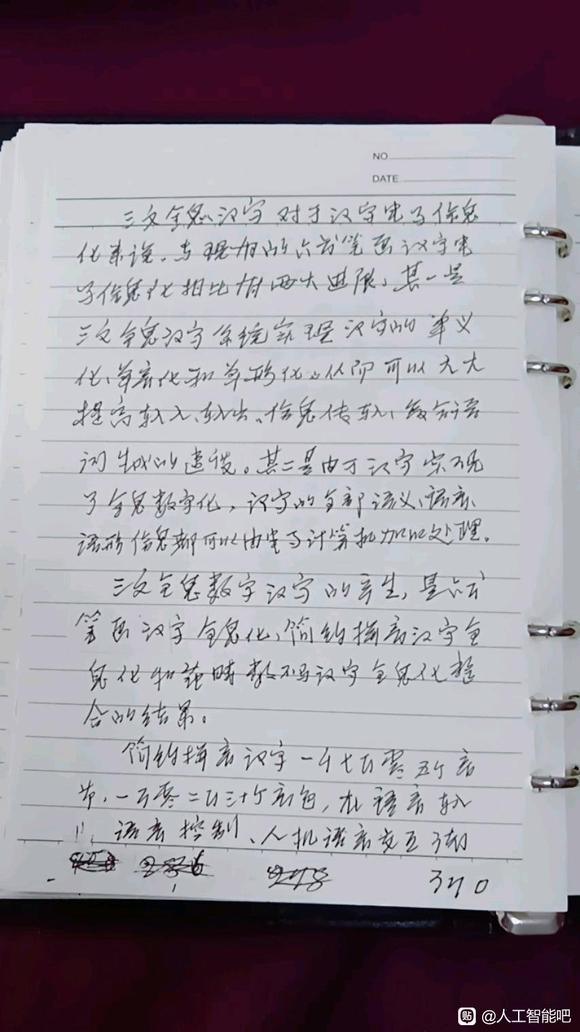 NO
DATE
三文全息汉字对于汉字电子信息
化来说，与现有的六书笔画汉字电
子信息化相比有两大进展。其一是
三文全息汉字系统实现汉字的单义
化、单音化和单形化。从而可以大大
提高输入、输出、信息传输、复合语
词生成的速度。其二是由于汉字实现
了全息数字化，汉字的全部语义、语音、
语形信息都可以由电子计算机加以处理。
三文全息数字汉字的产生，是六书
笔画汉字全息化、简约拼音汉字全
息化和 数码汉字全息化整
合的结果。
简约拼音汉字一千七百零五个音
节，一万零二百三十个音句，在语音输
语音控制、人机语音交互
370
@人工智能吧